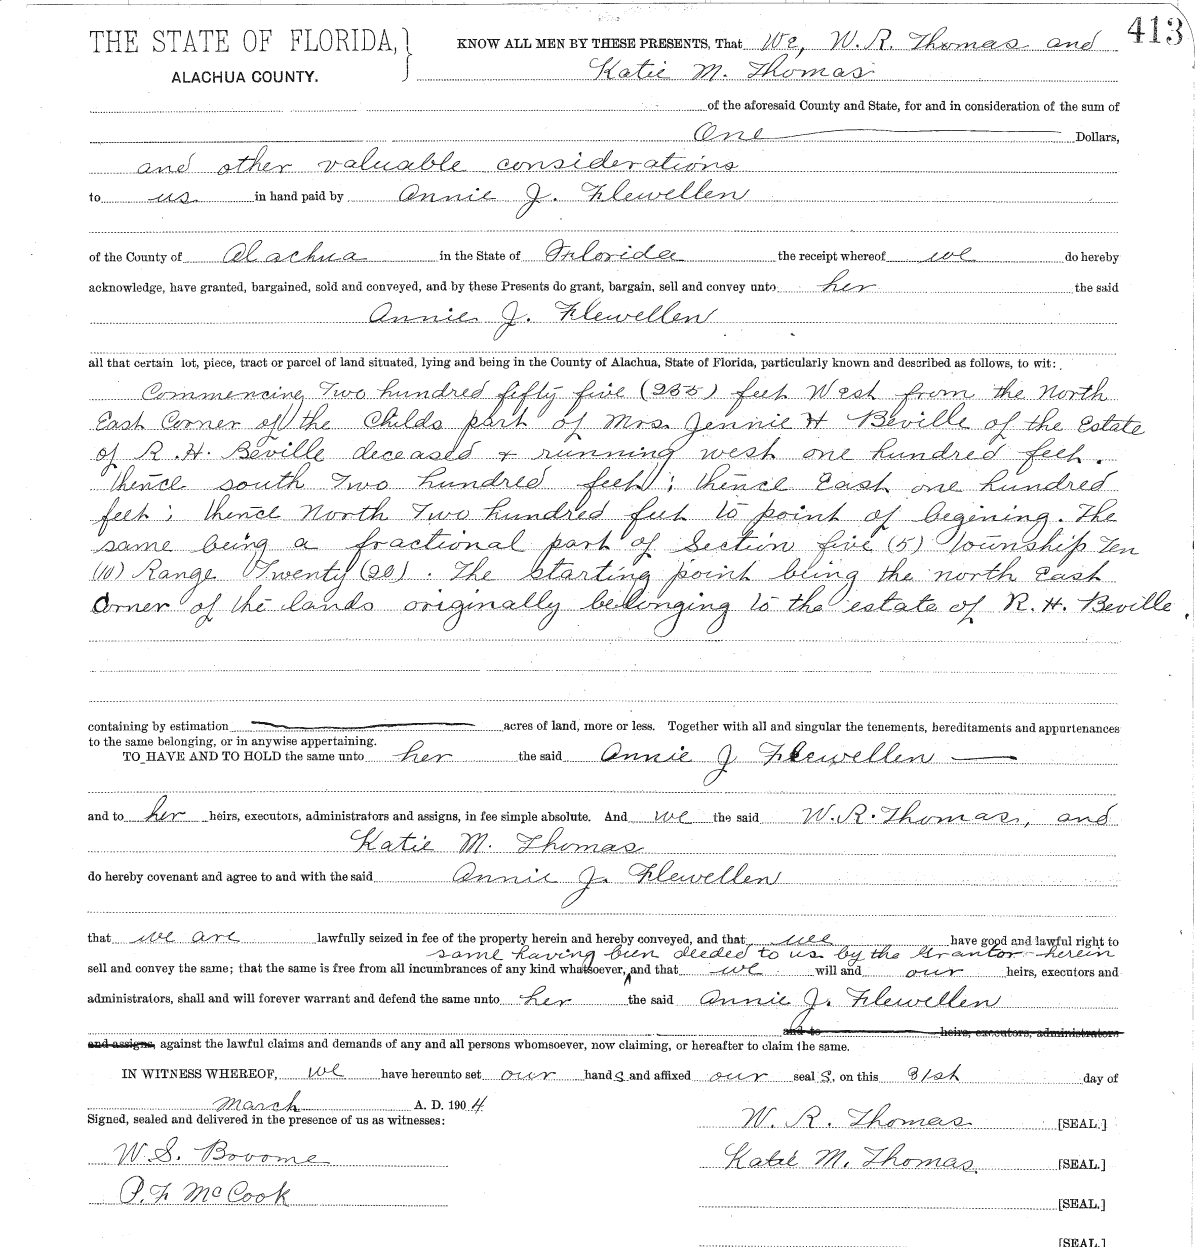 413
THE STATE OF FLORIDA,
ALACHUA COUNTY.
KNOW ALL MEN BY THESE PRESENTS, That We, W. R. Thomas and
Katie M. Thomas
of the aforesaid County and State, for and in consideration of the sum of
One Dollars,
and other valuable considerations
to us in hand paid by Annie J. Flewellen
of the County of Alachua in the State of Florida the receipt whereof we do hereby
acknowledge, have granted, bargained, sold and conveyed, and by these Presents do grant, bargain, sell and convey unto her the said
Annie J. Flewellen
all that certain lot, piece, tract or parcel of land situated, lying and being in the County of Alachua, State of Florida, particularly known and described as follows, to wit:
Commencing Two hundred fifty five (255) feet West from the North
East Corner of the Childs part of Mrs. Jennie H Beville of the Estate
of R. H. Beville deceased & running west one hundred feet.
Thence south Two hundred feet; thence East one hundred
feet; thence North Two hundred feet to point of begining. The
same being a fractional part of Section five (5) Township Ten
(10) Range Twenty (20). The starting point being the north East
Corner of the lands originally belonging to the estate of R. H. Beville.
containing by estimation acres of land, more or less. Together with all and singular the tenements, hereditaments and appurtenances
to the same belonging, or in anywise appertaining.
TO HAVE AND TO HOLD the same unto her the said Annie J Flewellen
and to her heirs, executors, administrators and assigns, in fee simple absolute. And we the said W. R. Thomas, and
Katie M. Thomas
do hereby covenant and agree to and with the said Annie J. Flewellen
that we are lawfully seized in fee of the property herein and hereby conveyed, and that wee have good and lawful right to
same having been deeded to us by the Grantor herein
sell and convey the same; that the same is free from all incumbrances of any kind whatsoever, and that we will and our heirs, executors and
administrators, shall and will forever warrant and defend the same unto her the said Annie J. Flewellen
and to heirs, executors, administrators
and assigns, against the lawful claims and demands of any and all persons whomsoever, now claiming, or hereafter to claim the same.
IN WITNESS WHEREOF, we have hereunto set our hands and affixed our seal S, on this 31st day of
March A. D. 1904
Signed, sealed and delivered in the presence of us as witnesses:
W. R. Thomas [SEAL.]
W. S. Broome
Katie M. Thomas [SEAL.]
P. F. McCook
[SEAL.]
[SEAL.]